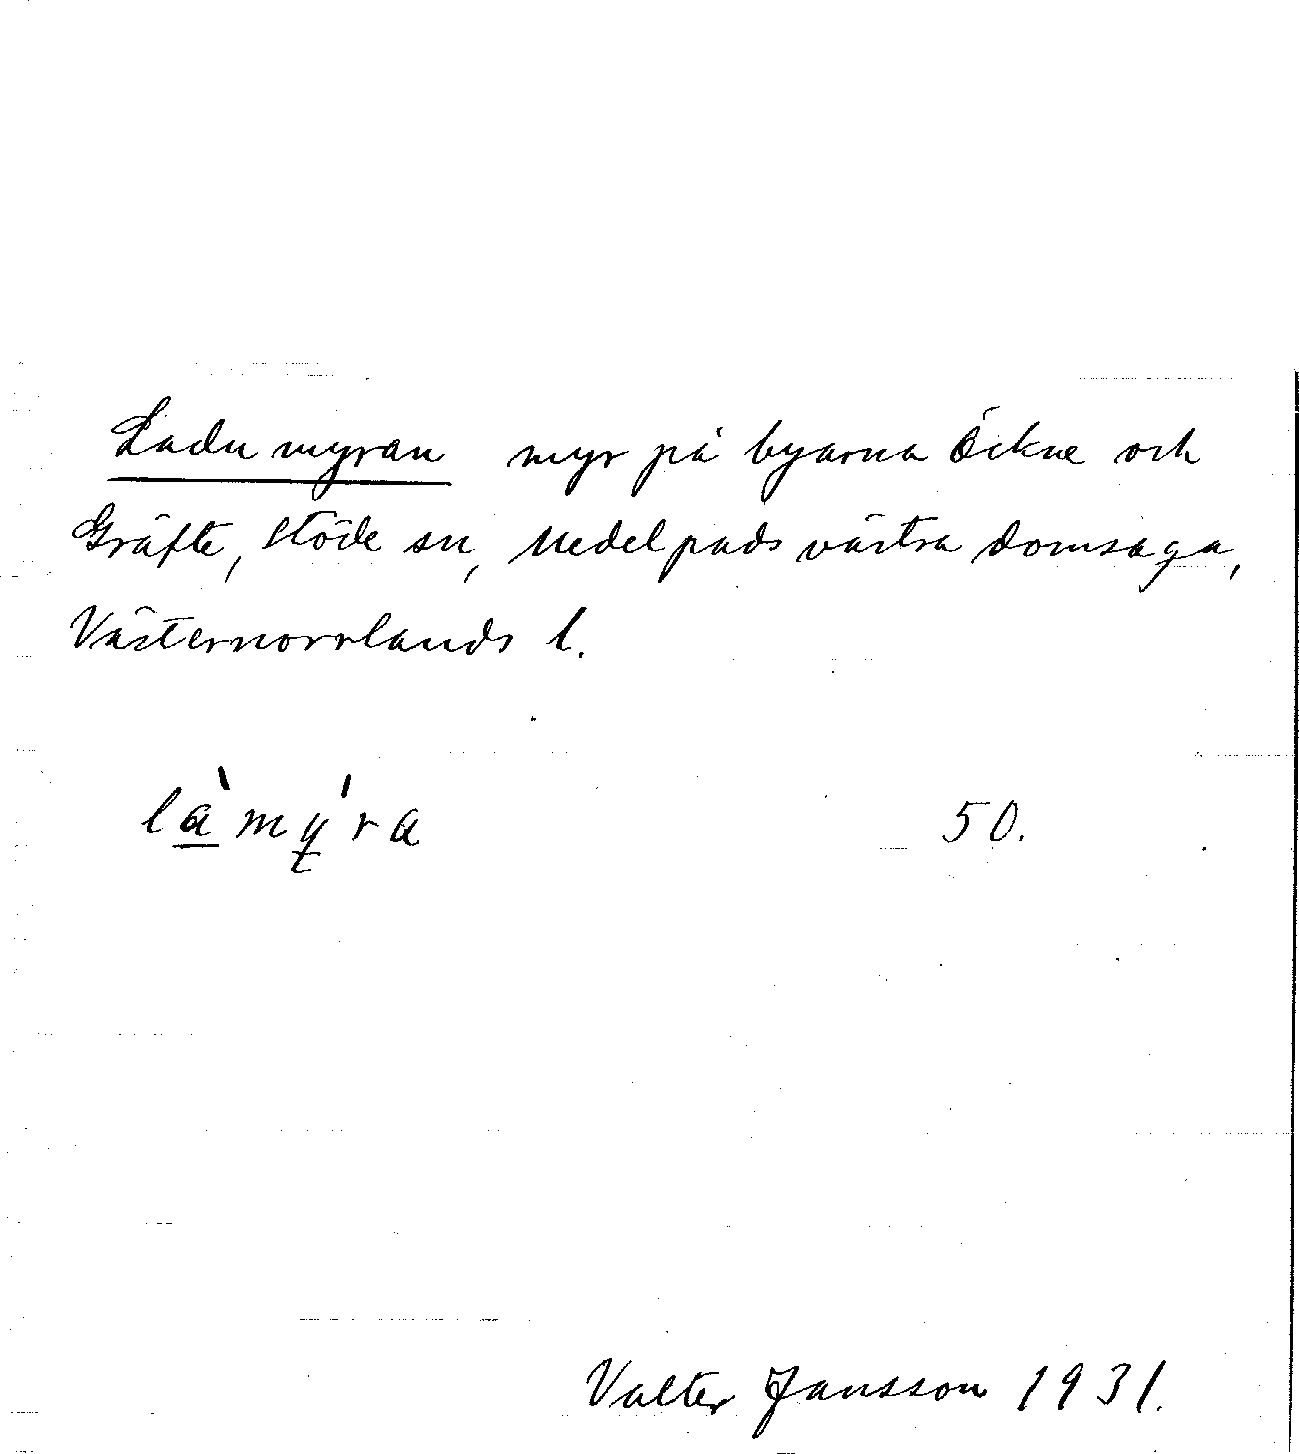 Ladumyran myr på byarna Öckne och
Gräfte, Stöde sn, Medelpads västra domsaga,
Västernorrlands l.
là mý ra 50.
Valter Jansson 1931.